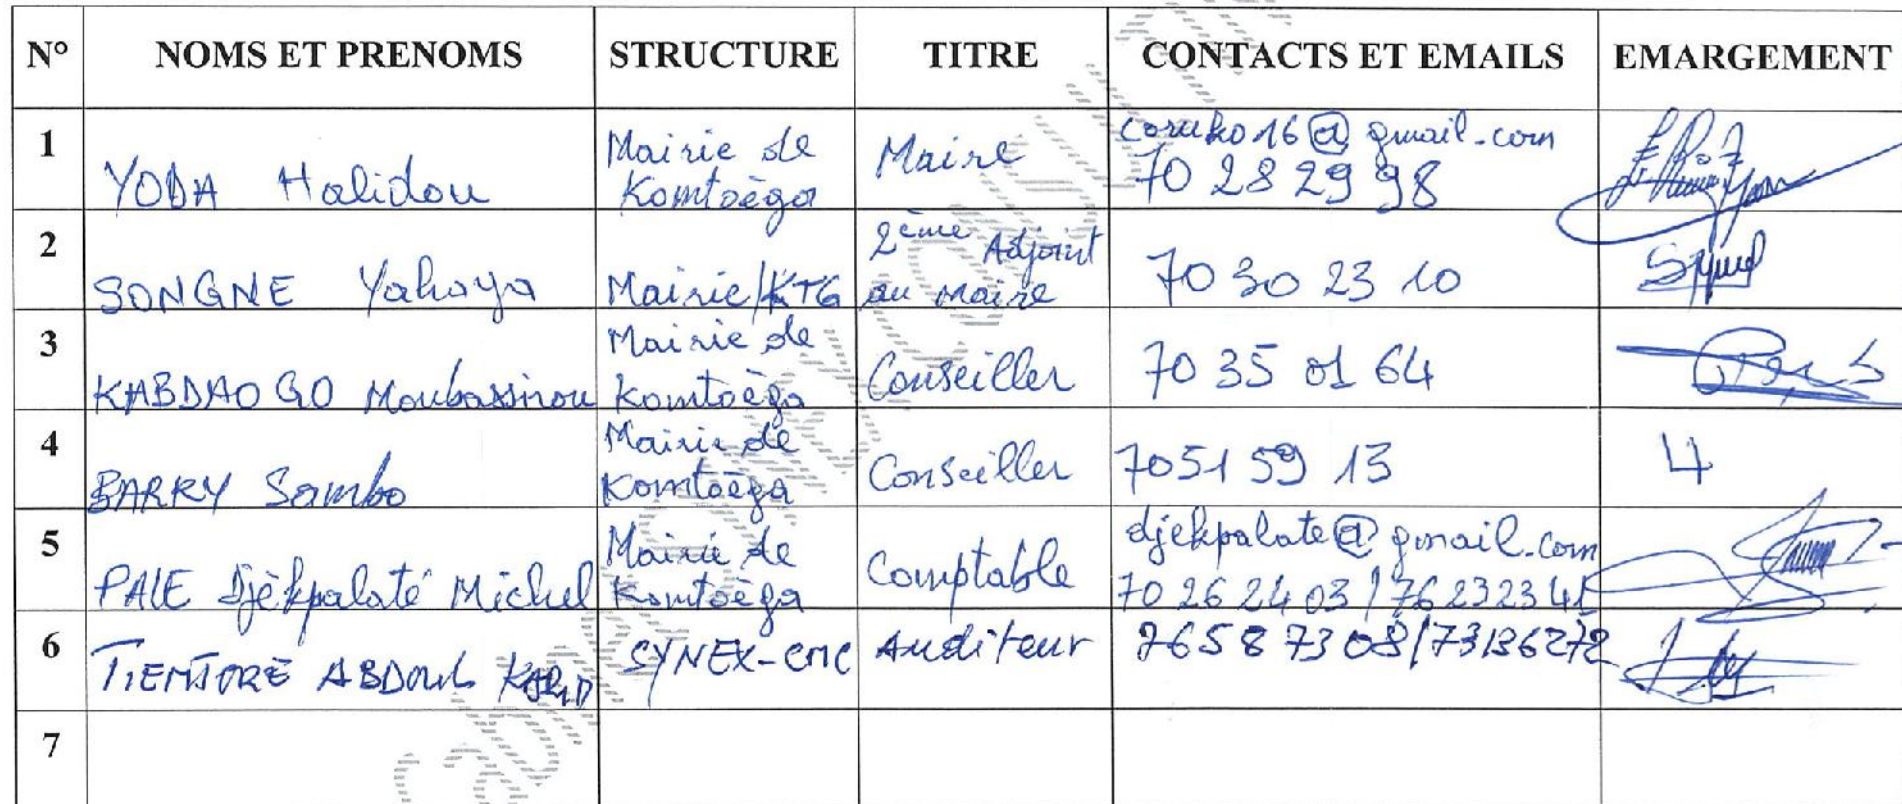 N° NOMS ET PRENOMS STRUCTURE TITRE CONTACTS ET EMAILS EMARGEMENT
1 YODA Halidou Mairie de Komtoèga Maire coruko16@gmail.com
70 28 29 98
2 SONGNE Yahaya Mairie/KTG 2ème Adjoint au Maire 70 30 23 10
3 KABDAOGO Moubassirou Mairie de Komtoèga Conseiller 70 35 01 64
4 BARRY Sambo Mairie de Komtoèga Conseiller 7051 59 13
5 PALE Djèkpalaté Michel Mairie de Komtoèga Comptable djekpalate@gmail.com
70 26 24 03 /
6 TIENTORE ABDOUL SYNEX-CMC Auditeur 765 8 73 08/
7